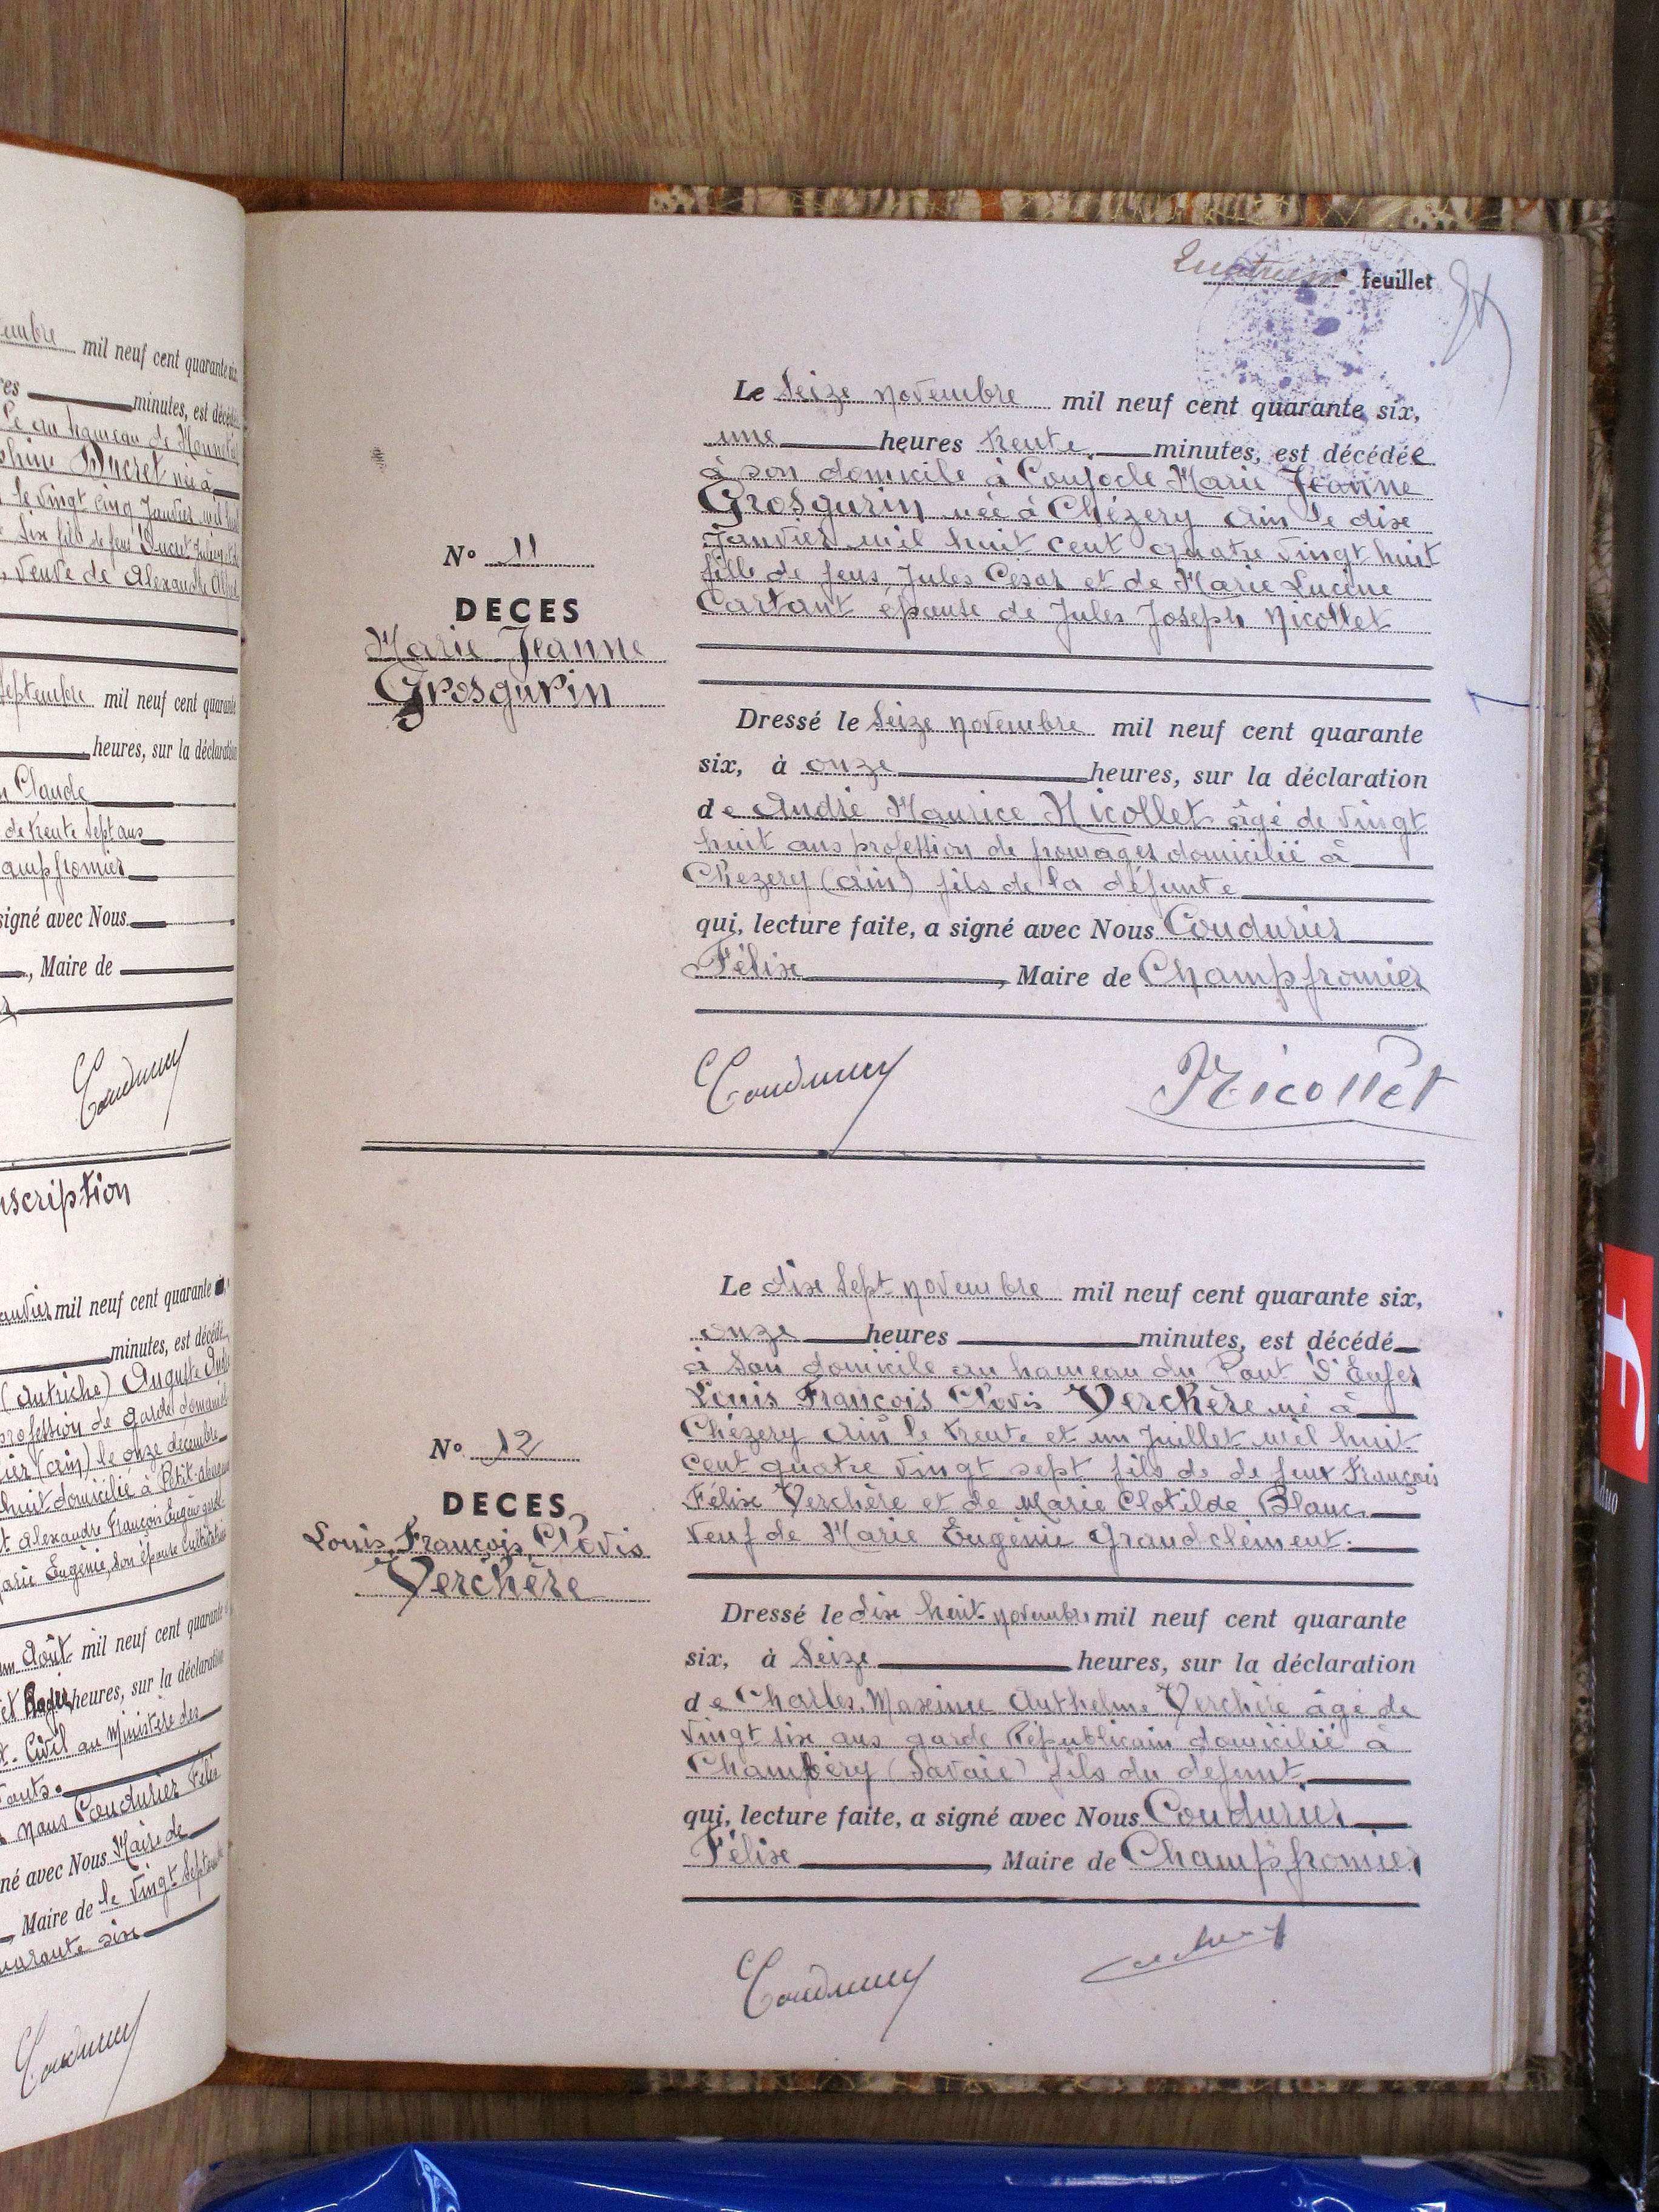 embre mil neuf cent quarante six
res minutes, est décédé
le au hameau de Monnetier
phine Ducret née à
le vingt cinq Janvier mil huit
, veuve de Alexandre
Septembre mil neuf cent quarante
heures, sur la déclaration
n Claude
de trente sept ans
ampfromier
signé avec Nous
, Maire de
Coudurier
nscription
anvier mil neuf cent quarante
minutes, est décédé
(autriche) Auguste
profession de garde domanial
ier (ain) le onze décembre
huit domicilié à Petit-
t Alexandre François Eugène
arie Eugénie, son épouse
Août mil neuf cent quarante
et heures, sur la déclaration
t. Civil au Ministère des
ants.
nous Coudurier Félix
né avec Nous Maire de
, Maire de le vingt Septembre
uarante six
Coudurier
Quatrième feuillet
Le Seize novembre mil neuf cent quarante six,
une heures trente minutes, est décédée
à son domicile à Conjocle Marie Jeanne
Grosgurin née à Chézery Ain le dix
Janvier mil huit cent quatre vingt huit
fille de feus Jules César et de Marie Lucine
Cartant épouse de Jules Joseph Nicollet
N° 11
DECES
Marie Jeanne
Grosgurin
Dressé le Seize novembre mil neuf cent quarante
six, à onze heures, sur la déclaration
de André Maurice Nicollet âgé de vingt
huit ans profession de fromager domicilié à
Chézery (ain) fils de la défunte
qui, lecture faite, a signé avec Nous Coudurier
Félix, Maire de Champfromier
Coudurier Nicollet
Le dix sept novembre mil neuf cent quarante six,
onze heures minutes, est décédé
à son domicile au hameau du Pont d'Enfer
Louis François Clovis Verchère né à
Chézery Ain le trente et un Juillet mil huit
cent quatre vingt sept fils de de feux François
Félix Verchère et de Marie Clotilde Blanc
veuf de Marie Eugénie Grandclément.
N° 12
DECES
Louis, François, Clovis
Verchère
Dressé le dix huit novembre mil neuf cent quarante
six, à Seize heures, sur la déclaration
de Charles, Maxime Anthelme Verchère âgé de
vingt six ans garde Républicain domicilié à
Chambéry (Savoie) fils du défunt
qui, lecture faite, a signé avec Nous Coudurier
Félix, Maire de Champfromier
Coudurier